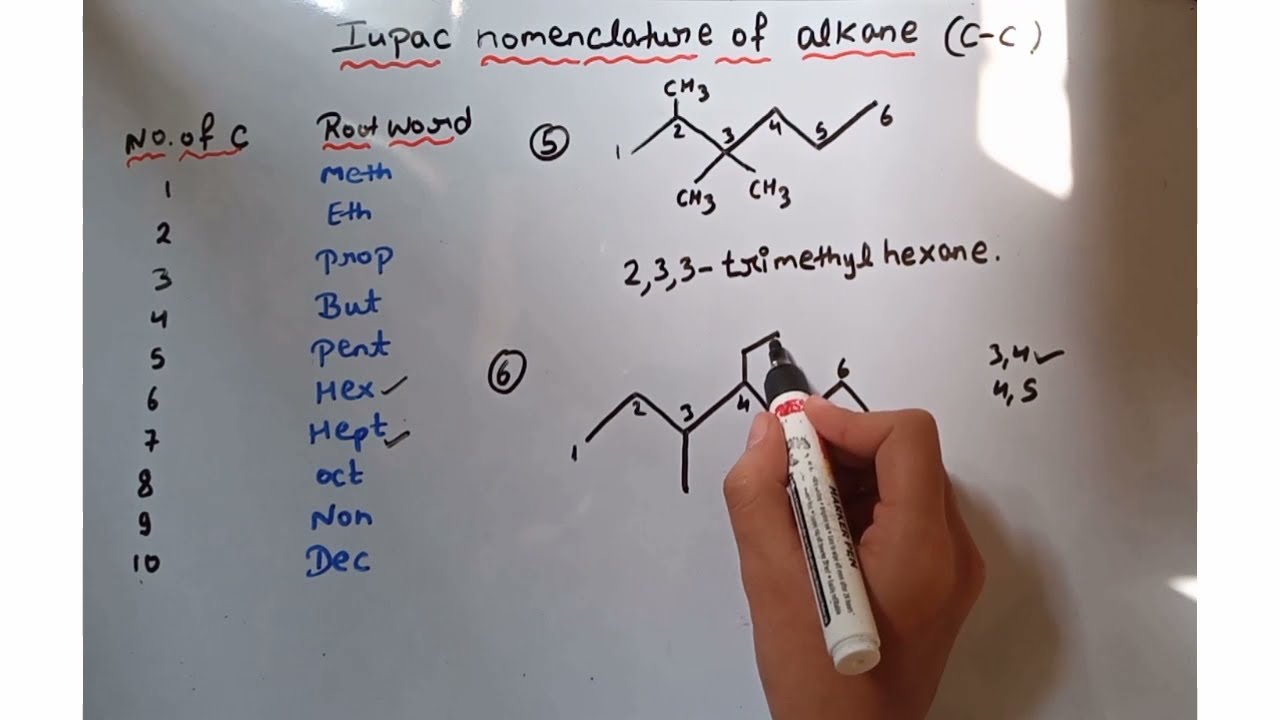 Iupac nomenclature of alkane (C-C)
No. of C Root word
1 Meth
2 Eth
3 prop
4 But
5 pent
6 Hex ✓
7 Hept ✓
8 oct
9 Non
10 Dec
5
CH3
1 2 3 4 5 6
CH3 CH3
2,3,3-trimethyl hexane.
6
1 2 3 4 6
3,4 ✓
4,5
MARKER PEN